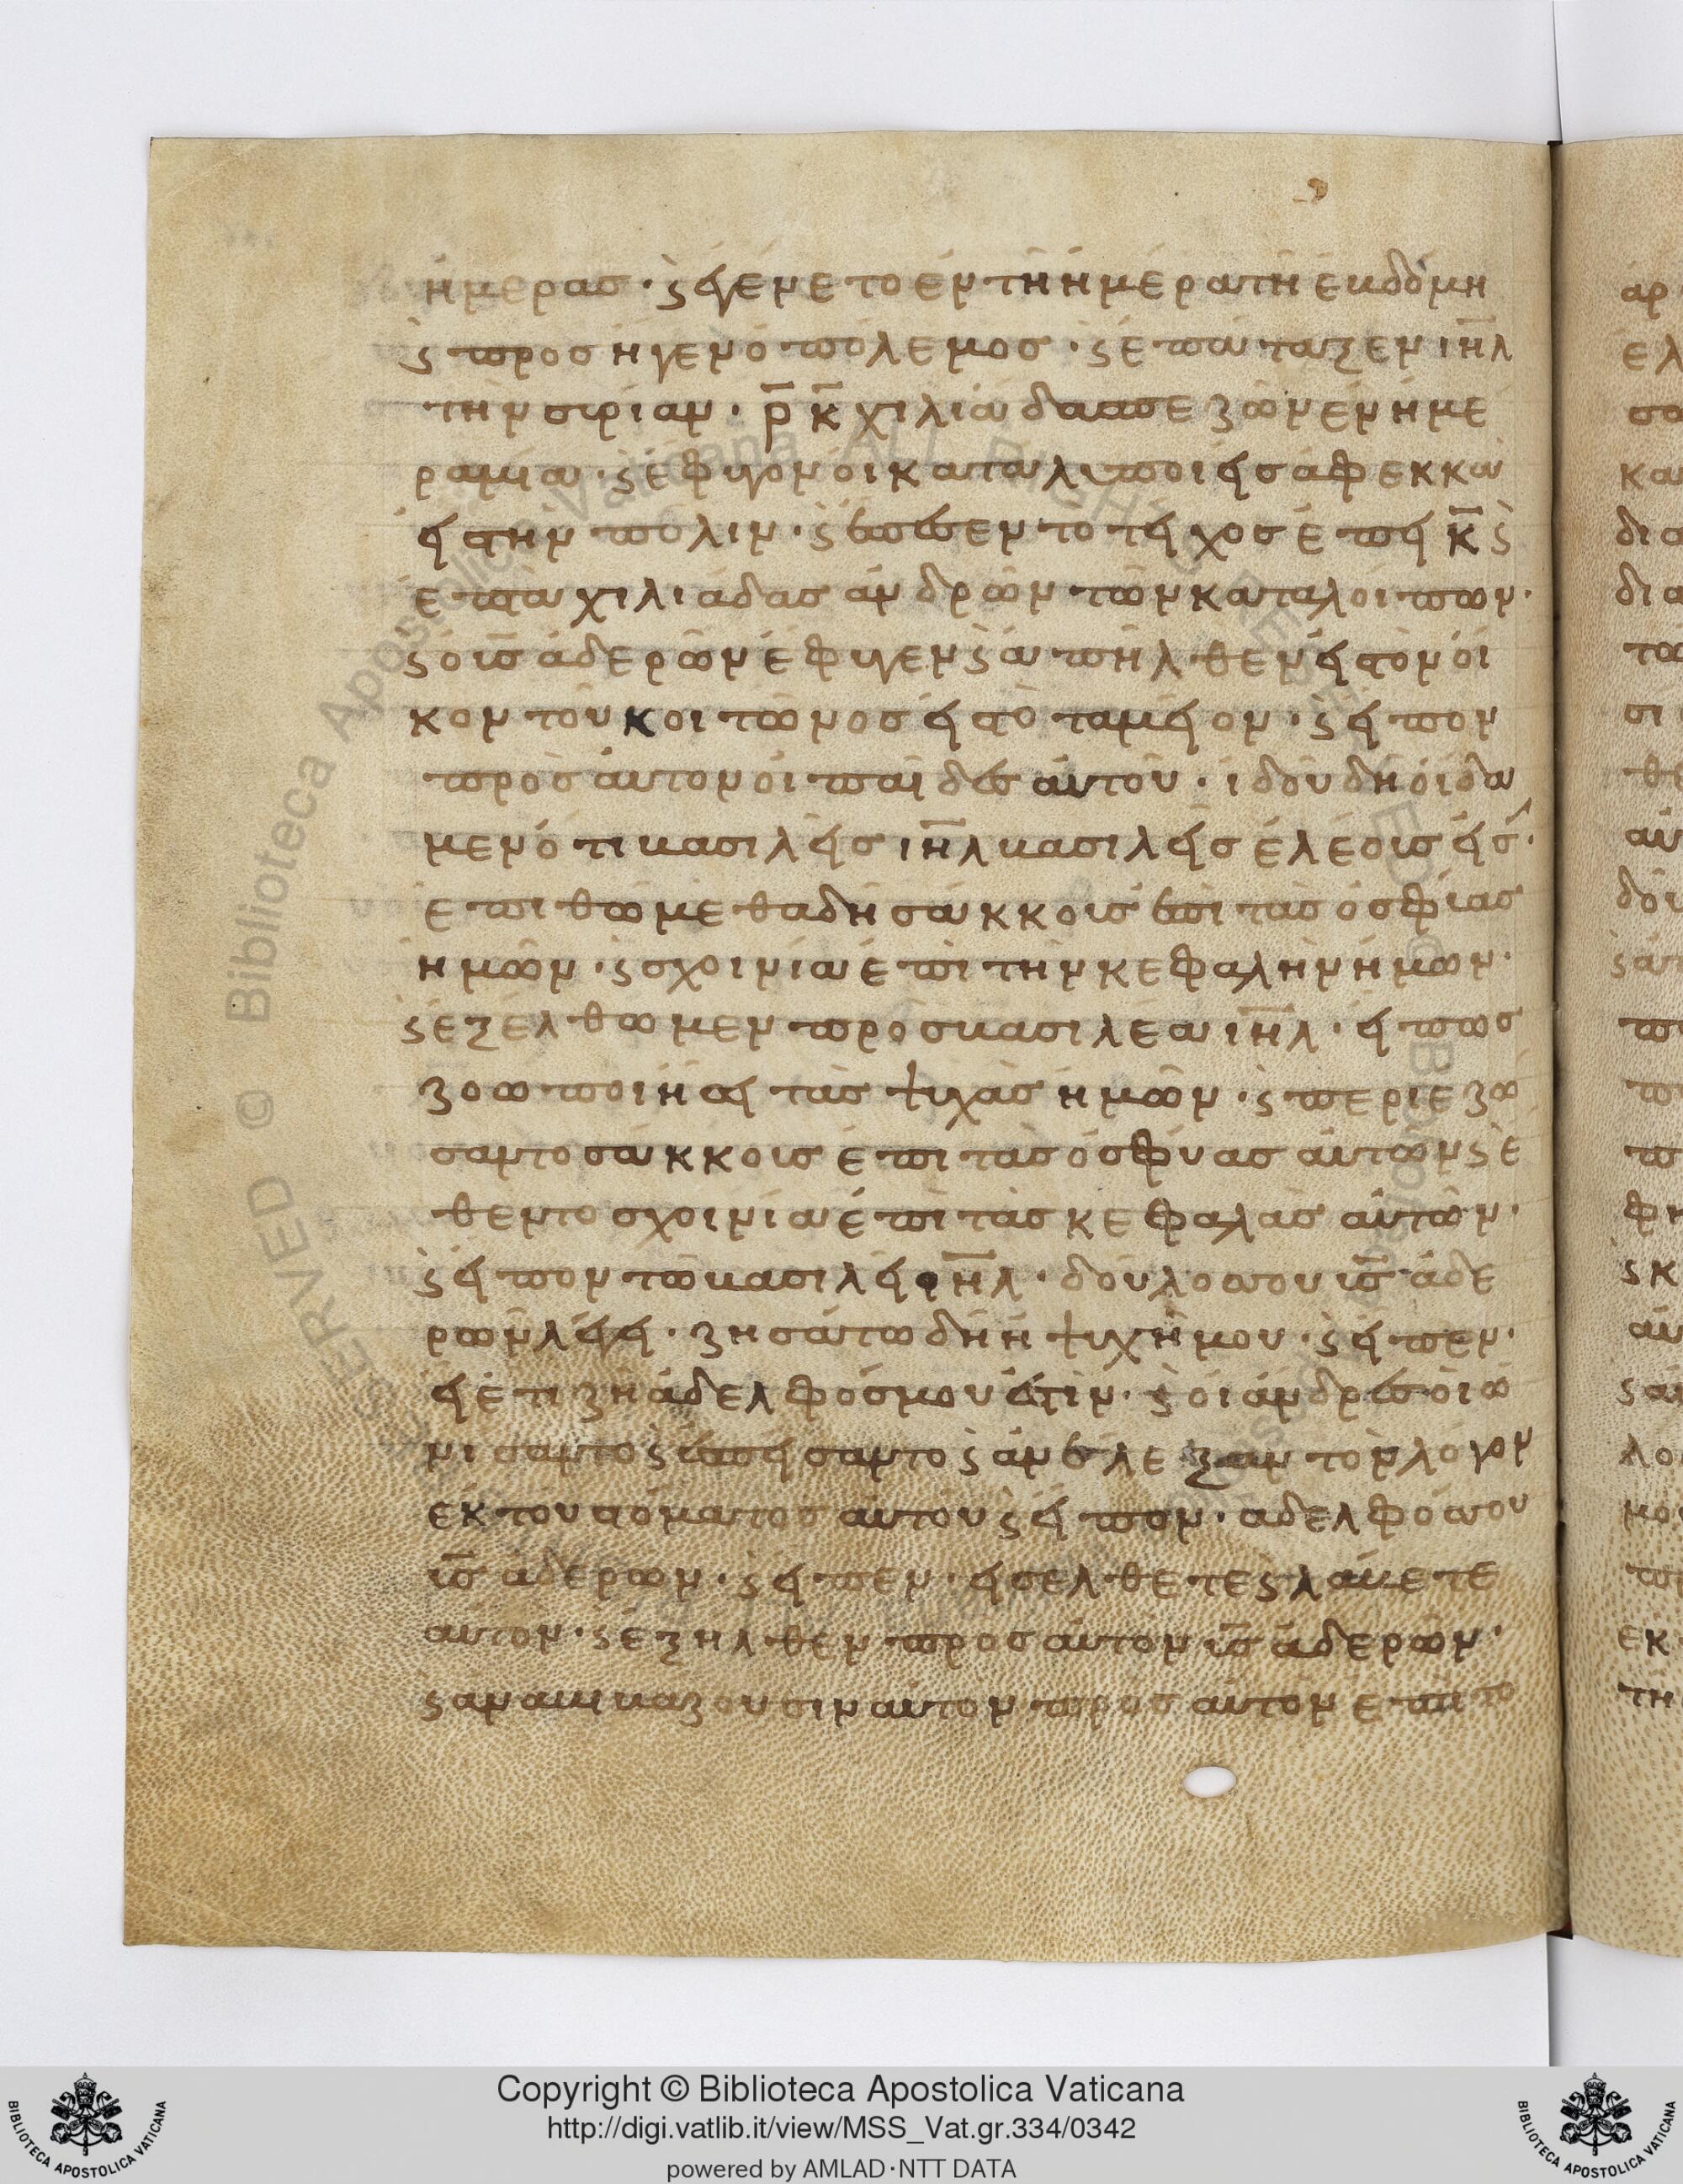 ἡμέρας· ϗ ἐγένετο ἐν τῆ ἡμέρα τῆ ἑβδόμη
ϗ προσήγεν ὁ πόλεμος· ϗ ἐπάταξεν ιη̅λ
τὴν συρίαν· ρ̅ κ̅ χιλιάδας πεζῶν ἐν ἡμέ
ρα μιᾶ· ϗ ἔφυγον οἱ κατάλιποι εἰς ἀφεκκὰ
εἰς τὴν πόλιν· ϗ ἔπεσεν τὸ τεῖχος ἐπεὶ κ̅ ϗ
ἑπτὰ χιλιάδας ἀνδρῶν τῶν καταλοίπων·
ϗ ὁ υἱσ̅ ἄδερ ῶν ἔφυγεν ϗ ἀπῆλθεν εἰς τὸν οἶ
κον τοῦ κοιτῶνος εἰς τὸ ταμεῖον· ϗ εἶπον
πρὸς αὐτὸν οἱ παῖδες αὐτοῦ· ἰδοὺ δὴ οἶδα
μεν ὅτι βασιλεῖς ιη̅λ βασιλεῖς ἐλέους εἰσ·
ἐπιθώμεθα δὴ σάκκους ἐπὶ τὰς ὀσφύας
ἡμῶν· ϗ σχοινία ἐπὶ τὴν κεφαλὴν ἡμῶν·
ϗ ἐξέλθωμεν πρὸς βασιλέα ιη̅λ· εἴ πως
ζοωποιήσει τὰς ψυχὰς ἡμῶν· ϗ περιεζώ
σαντο σάκκους ἐπὶ τὰς ὀσφύας αὐτῶν ϗ ἔ
θεντο σχοινία ἐπὶ τὰς κεφαλὰς αὐτῶν·
ϗ εἶπον τῶ βασιλεῖ ιη̅λ· δοῦλός σου υἱσ̅ ἄδε
ρ ῶν λέγει· ζησάτω δὴ ἡ ψυχή μου· ϗ εἶπεν·
εἰ ἔτι ζῆ ἀδελφός μου ἐστίν· ϗ οἱ ἄνδρες οἰω
νίσαντο ϗ ἐσπείσαντο ϗ ἀνέλεξαν τὸν λόγον
ἐκ τοῦ στόματος αὐτοῦ ϗ εἶπον· ἀδελφός σου
υἱσ̅ ἄδερ ων· ϗ εἶπεν· εἰσέλθετε ϗ λάβετε
αὐτόν· ϗ ἐξῆλθεν πρὸς αὐτὸν υἱσ̅ ἄδερ ῶν·
ϗ ἀναβιβάζουσιν αὐτὸν πρὸς αὐτὸν ἐπὶ τὸ
Copyright © Biblioteca Apostolica Vaticana
http://digi.vatlib.it/view/MSS_Vat.gr.334/0342
powered by AMLAD·NTT DATA